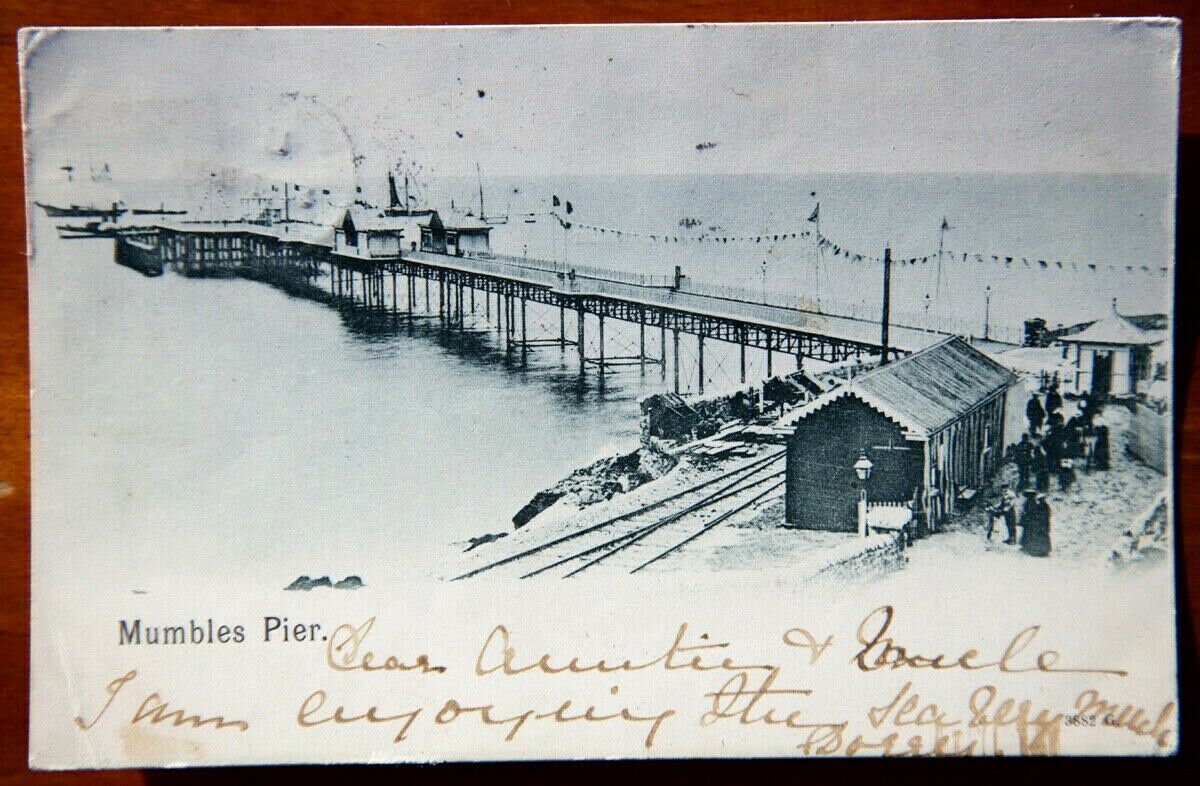 Mumbles Pier.
Dear Auntie & Uncle
I am enjoying the sea Very much
3882 G.